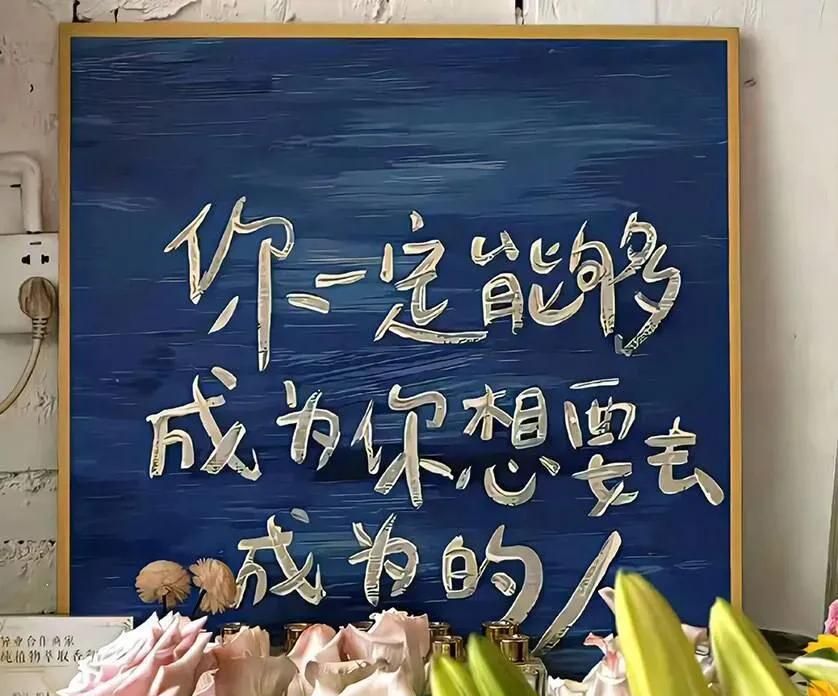 你一定能够
成为你想要去
成为的人
异业合作商家
纯植物萃取香氛